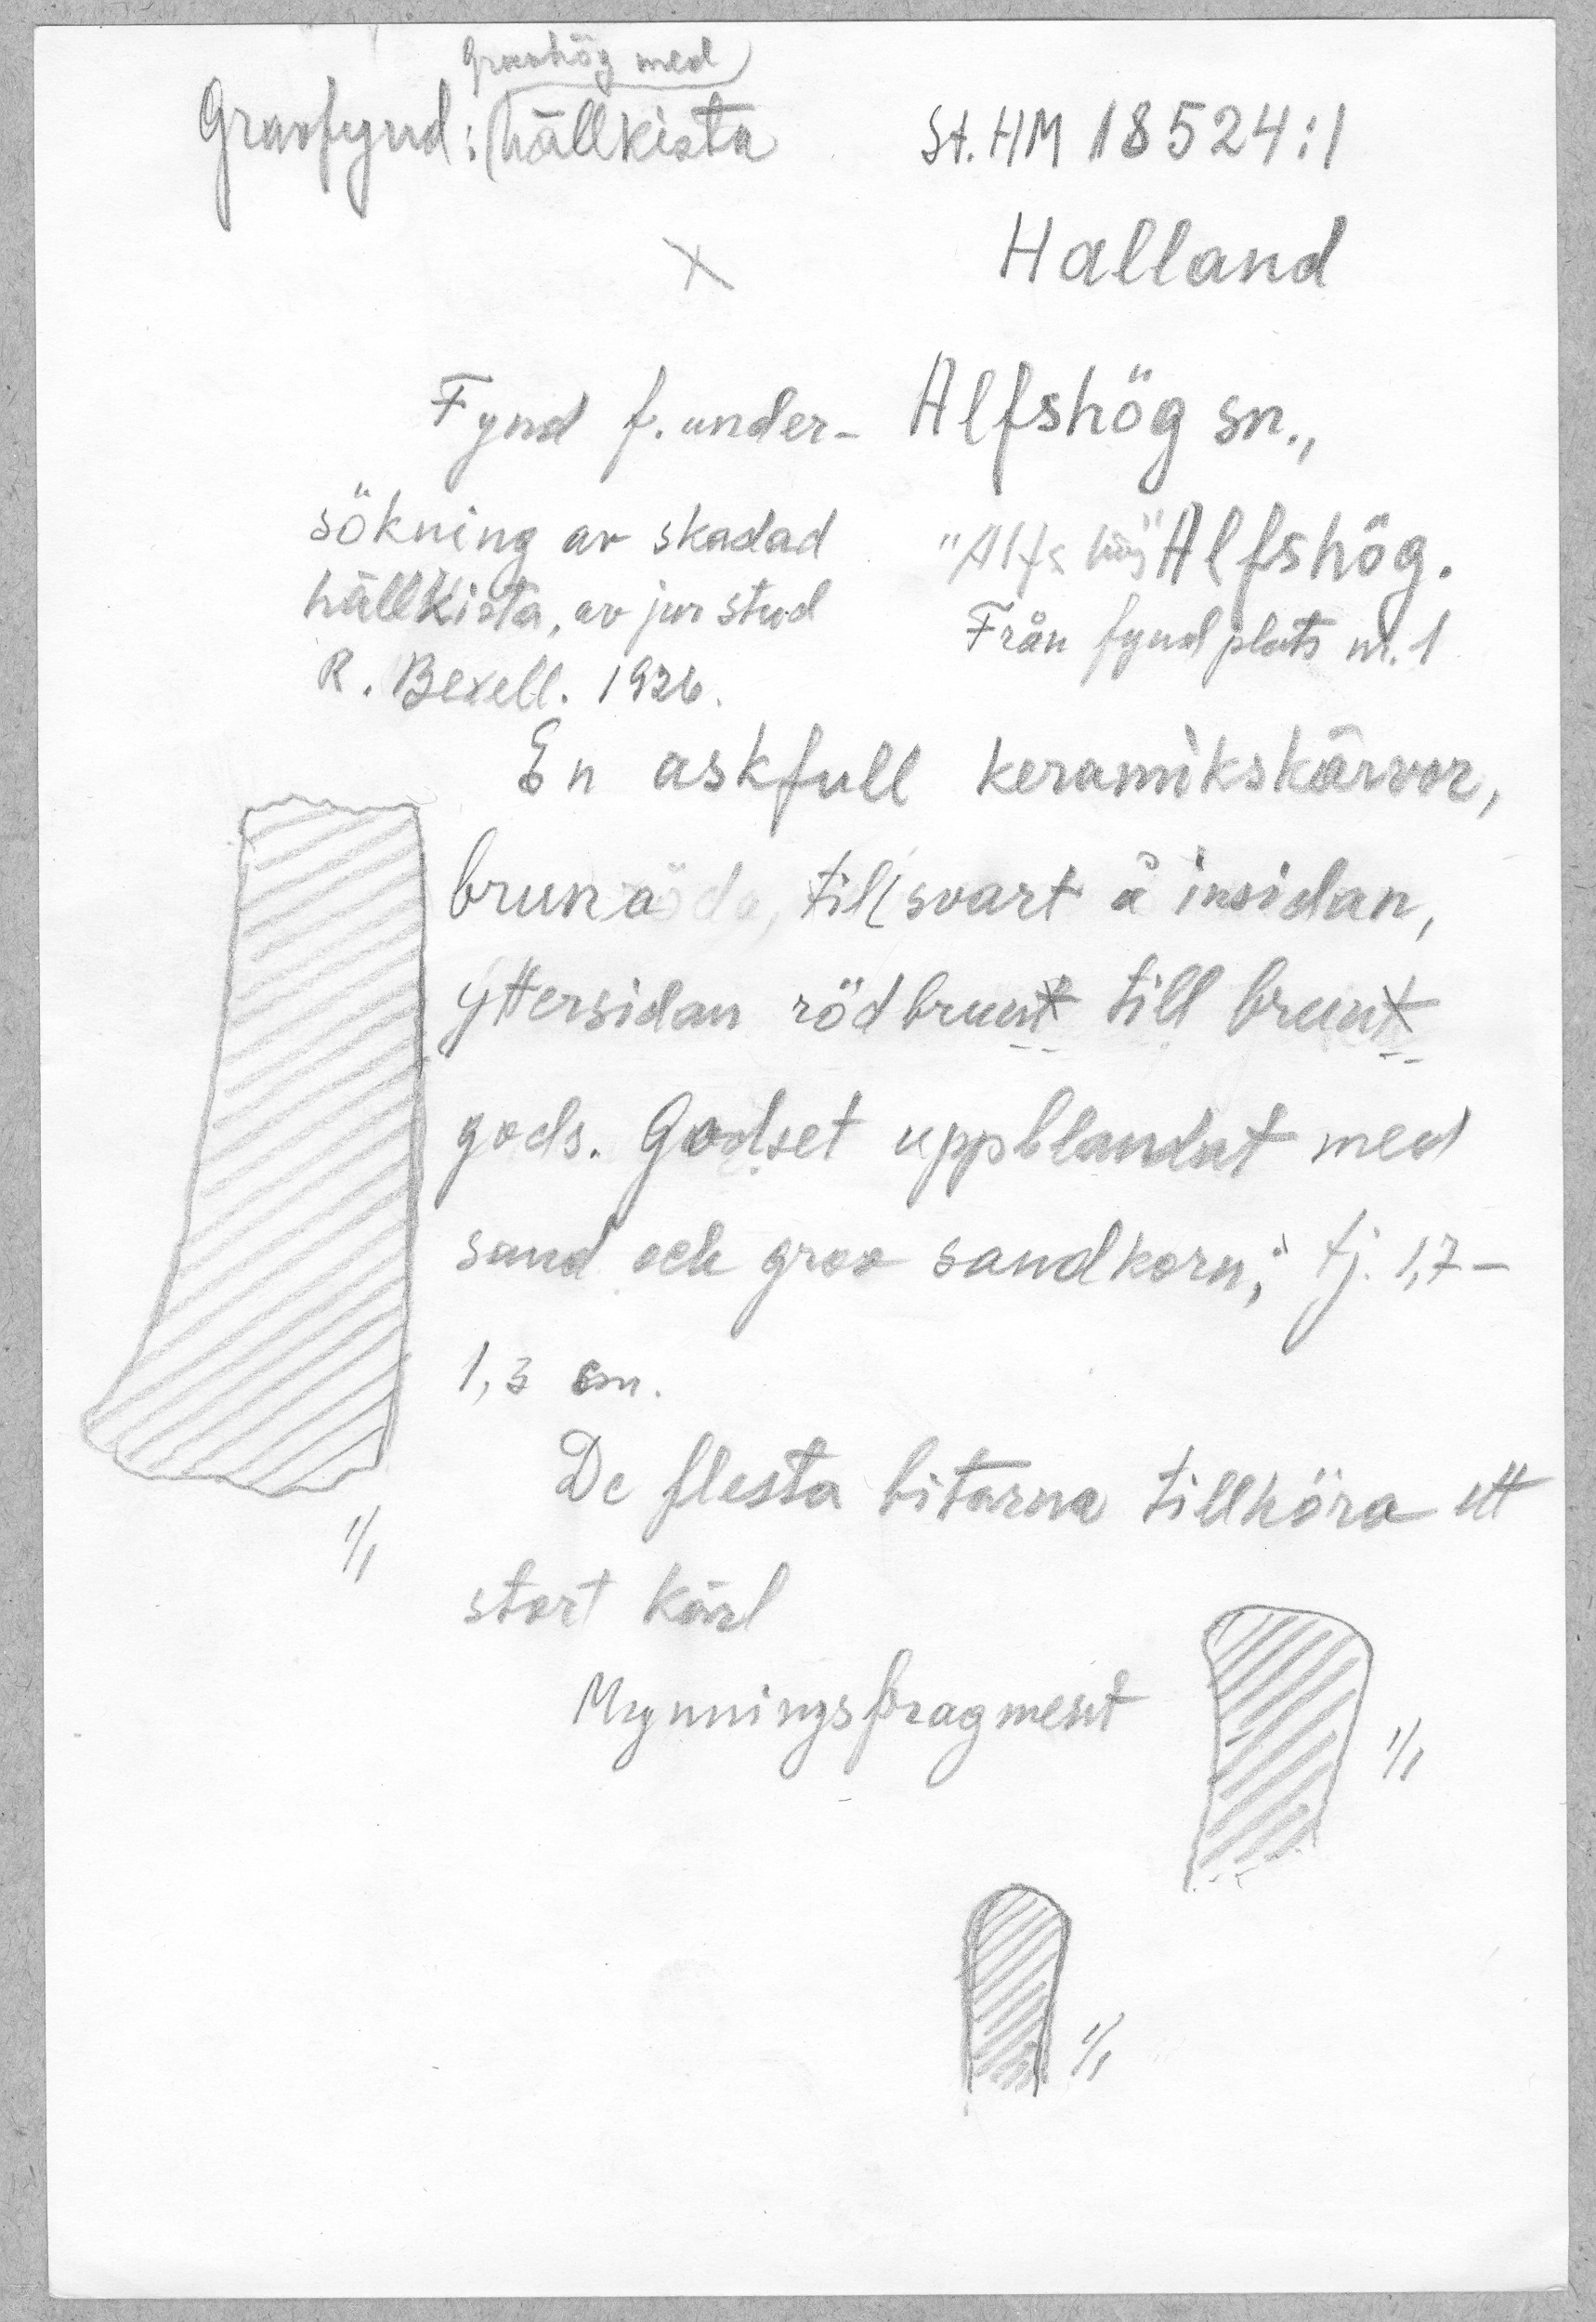 gravhög med
Gravfynd: (hällkista
St. HM 18524:1
Halland
Fynd f. under-
sökning av skadad
hällkista, av jur stud
R. Bexell. 1926.
Alfshög sn.,
"Alfs hög" Alfshög.
Från fyndplats nr. 1
En askfull keramikskärvor,
bruna till svart å insidan,
yttersidan rödbrunt till brunt
gods. Godset uppblandat med
sand och grov sandkorn; tj. 1,7-
1,3 cm.
De flesta bitarna tillhöra ett
stort kärl
Mynningsfragment
1/1
1/1
1/1